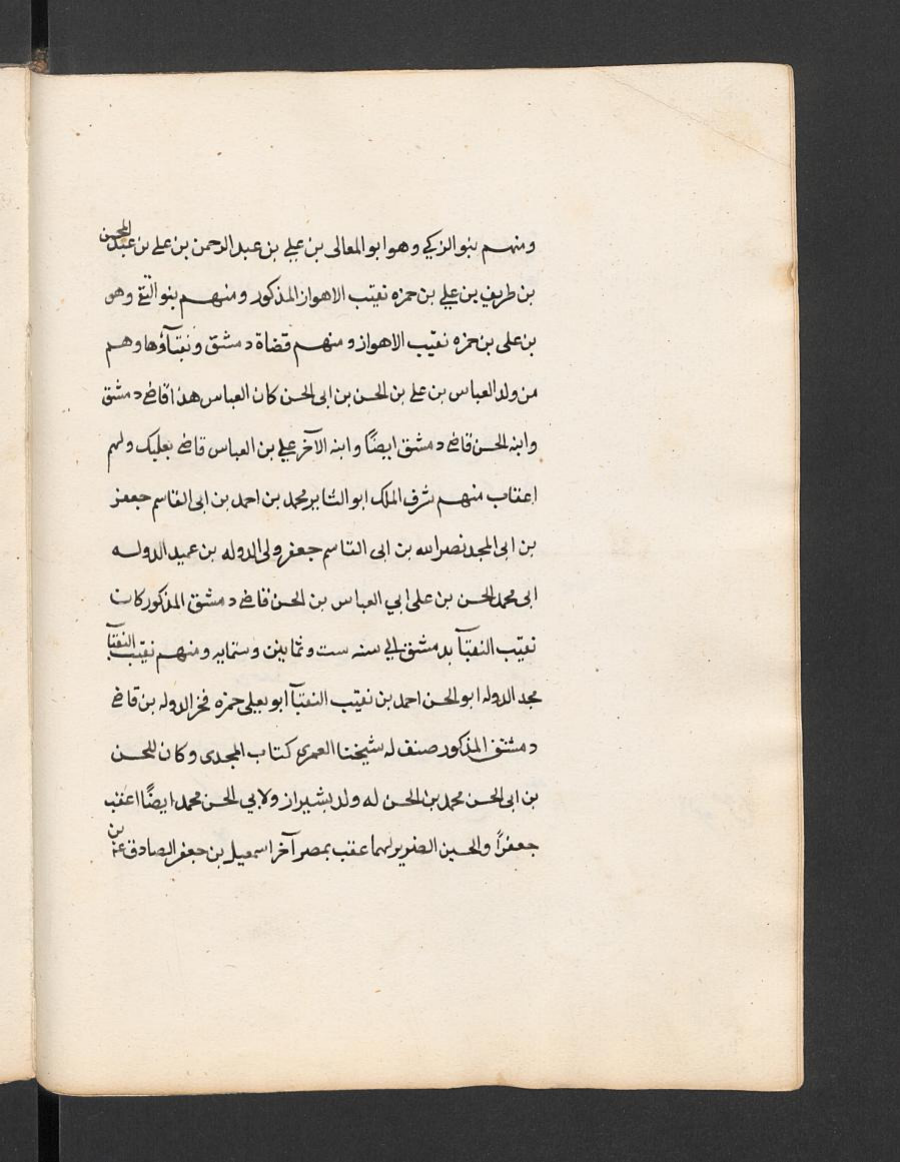 ومنهم بنو الزكي وهو ابو المعالى بن علي بن عبد الرحمن بن علي بن عبد المحسن
بن طريف بن علي بن حمزه نقيب الاهواز المذكور ومنهم بنو التقي وهو
بن على بن حمزه نقيب الاهواز ومنهم قضاة دمشق ونقبآؤها وهم
من ولد العباس بن علي بن الحسن بن ابى الحسن كان العباس هذا قاضي دمشق
وابنه الحسن قاضي دمشق ايضًا وابنه الآخر علي بن العباس قاضي بعلبك ولهم
اعقاب منهم شرف الملك ابو محمد بن احمد بن ابى القاسم جعفر
بن ابى المجد نصر الله بن ابى القاسم جعفر ولى الدوله بن عميد الدوله
ابى محمد الحسن بن على ابي العباس بن الحسن قاضي دمشق المذكور كان
نقيب النقبآ بدمشق الي سنه ست وثمانين وستمايه ومنهم نقيب النقبآ
مجد الدوله ابو الحسن احمد بن نقيب النقبآ ابو يعلى حمزه فخر الدوله بن قاضي
دمشق المذكور صنف له شيخنا العمرى كتاب المجدى وكان للحسن
بن ابى الحسن محمد بن الحسن له ولد بشيراز ولابي الحسن محمد ايضًا اعقب
جعفرًا والحسين الضرير لهما عقب بمصر آخر اسمعيل بن جعفر الصادق عن